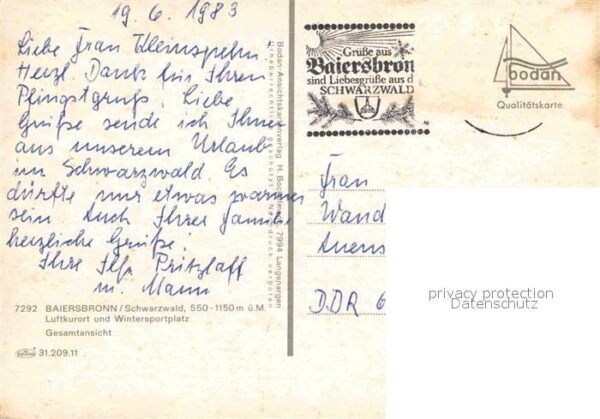 19. 6. 1983
Liebe Frau
Herzl. Dank für Ihren
Pfingstgruß. Liebe
Grüße sende ich Ihnen
aus unserem Urlaub
im Schwarzwald. Es
dürfte nur etwas warmer
sein. Auch Ihrer Familie
herzliche Grüße.
Ihre Ilse Pritzlaff
u. Mann
7292 BAIERSBRONN / Schwarzwald, 550 - 1150 m ü. M.
Luftkurort und Wintersportplatz
Gesamtansicht
31.209.11
Bodan-Ansichtskartenverlag H. 7994 Langenargen
Urheberrechtlich geschützt Nachdruck verboten
Grüße aus
Baiersbron
sind Liebesgrüße aus d
SCHWARZWALD
bodan
Qualitätskarte
Frau
Wand
Auens
DDR 6
privacy protection
Datenschutz